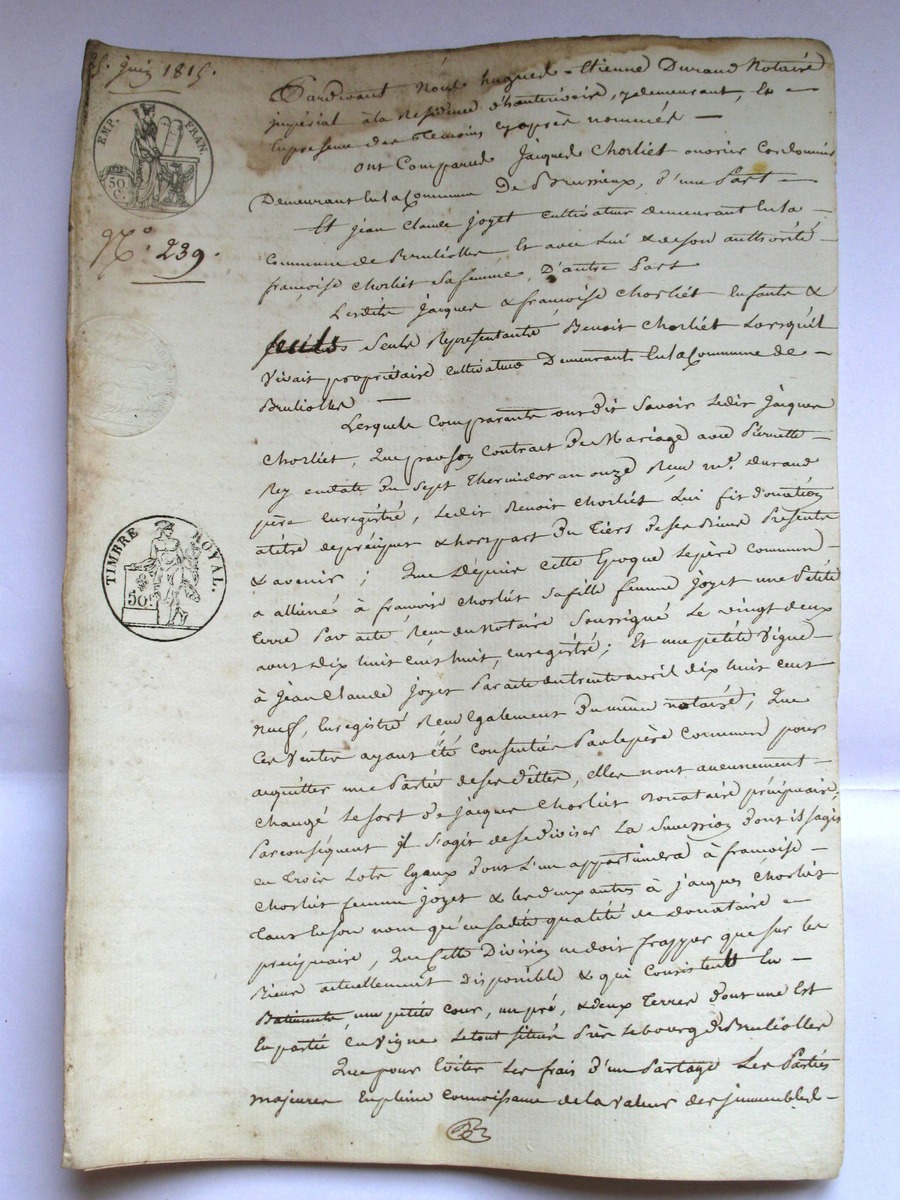 25. Juin 1815.
EMP. FRAN.
50 C.
N.º 239.
TIMBRE ROYAL.
50 C
Pardevant Nous hugues-Etienne Durand Notaire
impérial à la Résidence d'hauterivoire, y demeurant, Et
En présence des Témoins cy après nommés —
ont Comparus Jacques Chorliet ouvrier Cordonnier
Demeurant En la Commune De Brussieux, d'une Part —
Et jean Claude joyet cultivateur demeurant En la —
Commune de Brulioles Et avec Lui & de son authorité —
françoise Chorliet sa femme, D'autre Part
Lesdits Jacques & françoise Chorliet Enfants &
seuls Représentants Benoit Chorliet Lorsqu'il
Vivait propriétaire cultivateur Demeurant En la Commune de —
Brulioles —
Lesquels Comparants ont dit Savoir Ledit Jacques
Chorliet, Que par son Contrat De Mariage avec Pierrette —
Rey en date du Sept Thermidor an onze Reçu m.e durand
père Enregistré, Ledit Benoit Chorliet Lui fit donation
à titre de préciput & hors part Du Tiers De ses Biens Présents
& avenir ; Que Depuis Cette Epoque Le père Commun —
a alliéné à françoise Chorliet Sa fille femme joyet une Petite
terre Par acte Reçu du Notaire Soussigné Le vingt deux
aout dix huit cent huit, enregistré ; Et une petite Vigne —
à Jean Claude joyet Par acte du trente avril dix huit cent
neuf, Enregistré Reçu Egalement du même notaire ; Que
Ces Ventes ayant Été Consenties Par Le père Commun pour
acquitter une Partie de ses dettes, elles n'ont aucunement —
changé Le sort De jacques Chorliet Donataire préciputaire ;
Par conséquent il s'agit de se diviser La Succession dont il s'agit
en Trois Lots Egaux dont L'un appartiendra à françoise —
Chorliet femme joyet & les deux autres à jacques Chorliet
tant En son nom qu'en sadite qualité de Donataire —
préciputaire, Que Cette Division ne doit frapper que sur les
Biens actuellement disponible & qui Consistent En —
Batiments, une petite Cour, un pré, & deux Terres dont une Est
En partie En Vigne Le tout situé Près Le bourg De Brulioles
Que pour Eviter Les frais d'un Partage Les Parties
majeures En pleine Connoissance de la valeur des jmmeubles —